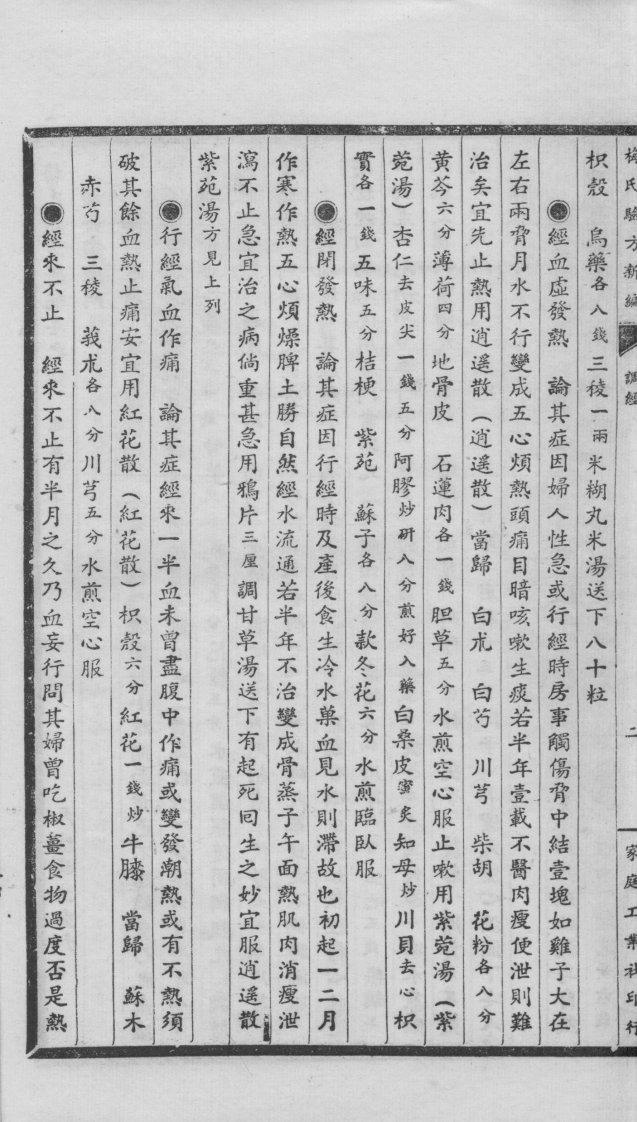 梅氏驗方新編
調經
二
家庭工業社印行
枳殼　烏藥各八錢三稜一兩米糊丸米湯送下八十粒
◉經血虛發熱　論其症因婦人性急或行經時房事觸傷脅中結壹塊如雞子大在
左右兩脅月水不行變成五心煩熱頭痛目暗咳嗽生痰若半年壹載不醫肉瘦便泄則難
治矣宜先止熱用逍遥散（逍遥散）當歸　白朮　白芍　川芎　柴胡　花粉各八分
黃芩六分薄荷四分地骨皮　石蓮肉各一錢胆草五分水煎空心服止嗽用紫菀湯（紫
菀湯）杏仁去皮尖一錢五分阿膠炒研八分煎好入藥白桑皮蜜炙知母炒川貝去心枳
實各一錢五味五分桔梗　紫苑　蘇子各八分款冬花六分水煎臨臥服
◉經閉發熱　論其症因行經時及產後食生冷水菓血見水則滯故也初起一二月
作寒作熱五心煩燥脾土勝自然經水流通若半年不治變成骨蒸子午面熱肌肉消瘦泄
瀉不止急宜治之病倘重甚急用鴉片三厘調甘草湯送下有起死回生之妙宜服逍遥散
紫苑湯方見上列
◉行經氣血作痛　論其症經來一半血未曾盡腹中作痛或變發潮熱或有不熱須
破其餘血熱止痛安宜用紅花散（紅花散）枳殼六分紅花一錢炒牛膝　當歸　蘇木
赤芍　三稜　莪朮各八分川芎五分水煎空心服
◉經來不止　經來不止有半月之久乃血妄行問其婦曾吃椒薑食物過度否是熱